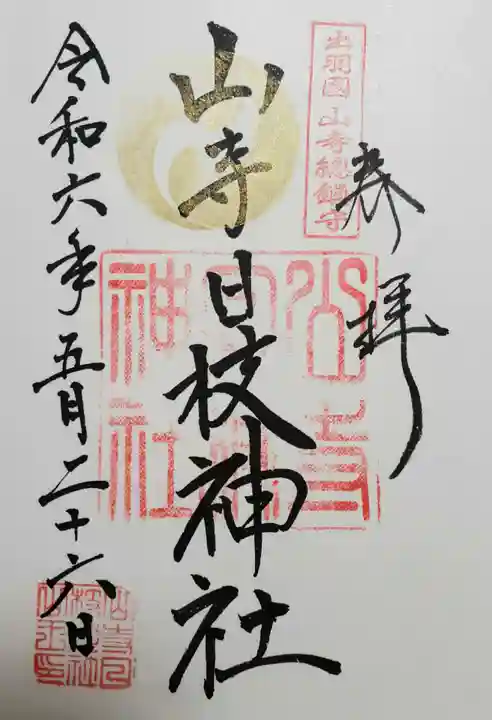 出羽國山寺総鎮守
奉拝
山寺日枝神社
山寺日枝神社
令和六年五月二十六日